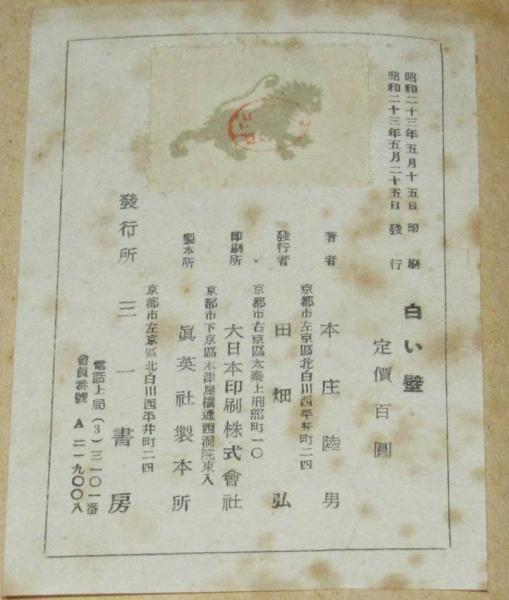 昭和二十三年五月十五日 印刷
昭和二十三年五月二十五日 發行
白い壁
定價百圓
著者 本庄陸男
京都市左京區北白川西平井町二四
發行者 田畑弘
京都市右京區太秦上刑部町一〇
印刷所 大日本印刷株式會社
京都市下京區木津屋橋通西洞院東入
製本所 眞英社製本所
京都市左京區北白川西平井町二四
發行所 三一書房
電話上局(3)三一〇一番
會員番號 A二一九〇〇八